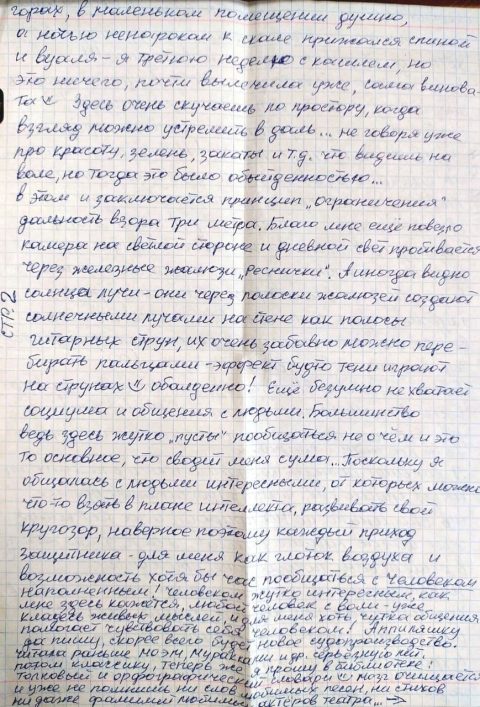 горах, в маленьком помещении душно,
а ночью ненароком к скале прижался спиной
и вуаля – я третюю неделю с кашлем, но
это ничего, почти вылечила уже, сама винова-
та☺ Здесь очень скучаешь по простору, когда
взгляд можно устремить в даль... не говоря уже
про красоту, зелень, закаты и т.д. что видишь на
воле, но тогда это было обыденностью...
в этом и заключается принцип „ограничения"
дальность взора три метра. Благо мне ещё повезло
камера на светлой стороне и дневной свет пробивается
через железные жалюзи „Реснички". А иногда видно
солнца лучи – они через полоски жалюзей создают
солнечными лучами на стене как полосы
гитарных струн, их очень забавно можно пере-
бирать пальцами – эффект будто тени играют
на струнах ☺ обалденно! Ещё безумно не хватает
социума и общения с людьми. Большинство
ведь здесь жутко „пусты" пообщаться не о чём и это
то основное, что сводит меня с ума... Поскольку я
общалась с людьми интересными, от которых можно
что-то взять в плане интеллекта, развивать свой
кругозор, наверное поэтому каждый приход
защитника – для меня как глоток воздуха и
возможность хотя бы час пообщаться с человеком
наполненным! Человеком жутко интересным, как
мне здесь кажется, любой человек с воли – уже
кладезь живых мыслей, и для меня хоть чутка общения
помогает чувствовать себя человеком! Аппиляшку
да пишу, скорее всего будет новое судопроизводство.
читала раньше Моэм, Мураками и др. серьёзную лит.
потом классику, теперь же я прошу в библиотеке:
толковый и орфографический словари ☺ мозг очищается
и уже не помнишь ни слов любимых песен, ни стихов
ни даже фамилий любимых актёров театра... →
СТР. 2